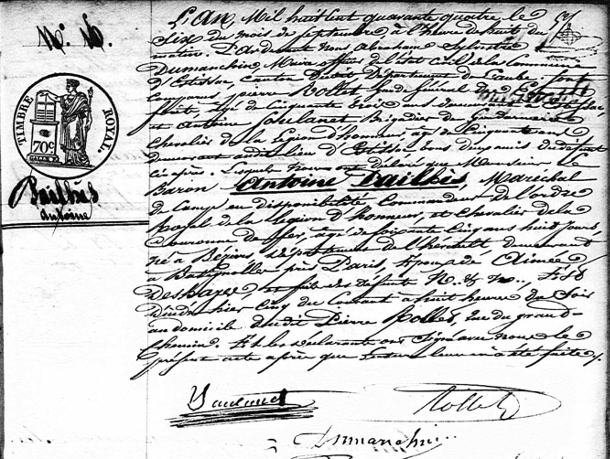 N.º 6.
TIMBRE ROYAL.
70c
Bailhès
Antoine
L'An, Mil huit Cent quarante quatre le
Six du mois de septembre à l'heure de huit du
matin. Pardevant Nous Abraham Sylvestre
Dumanchin Maire officier de l'état civil de la commune
d'Estissac, canton Département de l'aube, sont
comparus, pierre Rollet
âgé de Cinquante trois ans demeurant
et Antoine Brigadier de Gendarmerie
Chevalier de la Légion d'honneur, âgé de Cinquante ans
demeurant audit lieu d'Estissac
Lesquels Nous ont déclaré que Monsieur le
Baron Antoine Bailhès, Maréchal
de Camp en disponibilité Commandeur de l'ordre
royal de la Légion d'honneur, et Chevalier de la
Couronne de fer, âgé de soixante Cinq ans huit jours,
né à Béziers, département de l'hérault, demeurant
à Batignolles près Paris, époux de Aimée
Deshayes, et fils des défunts N. & N., est
Décédé hier Cinq du Courant à huit heure du Soir
au domicile dudit Pierre Rollet, rue du grand
chemin. Et les déclarants ont signé avec nous le
présent acte après que lecture leur en a été faite.
Rollet
Dumanchin